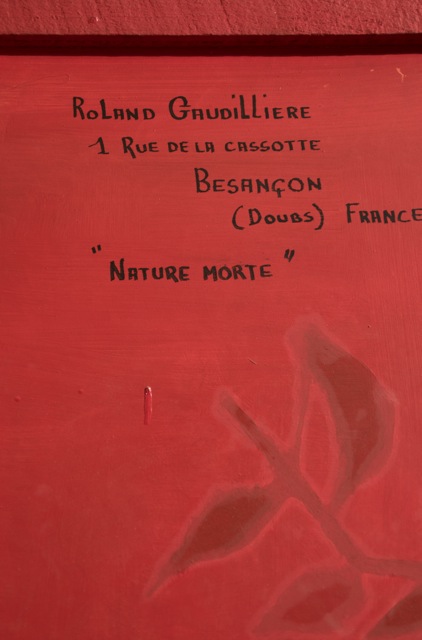 Roland Gaudilliere
1 Rue de la Cassotte
Besançon
(Doubs) France
"Nature morte"